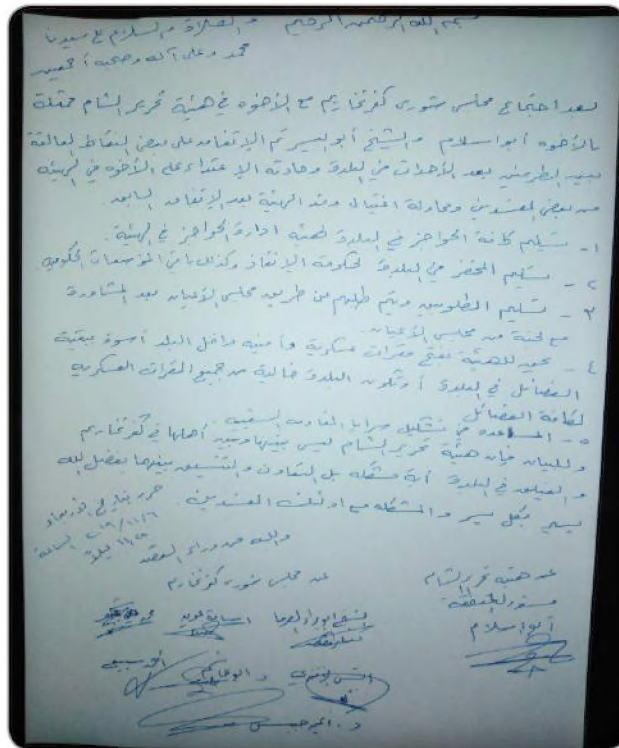 بسم الله الرحمن الرحيم والصلاة والسلام على سيدنا
محمد وعلى آله وصحبه أجمعين
بعد اجتماع مجلس شورى كفرتخاريم مع الأخوة في هيئة تحرير الشام ممثلة
بالأخوه أبو اسلام والشيخ أبو اليسر تم الإتفاق على بعض النقاط العالقة
بين الطرفين بعد الأحداث في البلدة وحادثة الإعتداء على الأخوة في الهيئة
من بعض المفسدين ومحاولة اغتيال وفد الهيئة بعد الإتفاق السابق
١- تسليم كافة الحواجز في البلدة لهيئة ادارة الحواجز في الهيئة.
٢- تسليم المخفر في البلدة لحكومة الإنقاذ وكذلك باقي المؤسسات الحكومية.
٣- تسليم المطلوبين ويتم طلبهم عن طريق مجلس الأعيان بعد المشاورة
مع لجنة من مجلس الأعيان.
٤- يحق للهيئة بفتح مقرات عسكرية وأمنية داخل البلد أسوة ببقية
الفصائل في البلدة أو تكون البلدة خالية من جميع المقرات العسكرية
لكافة الفصائل
٥- المساعدة في تشكيل سرايا المقاومة الشعبية
وللبيان فإن هيئة تحرير الشام ليس بينها وبين أهلها في كفرتخاريم
و الفيلق في البلدة أية مشكلة بل التعاون والتنسيق بينهما بفضل الله
يسير بكل يسر والمشكلة مع اولئك المفسدين.
حرر بتاريخ الأربعاء
١٩/١١/٦ الساعة
١١،٥ ليلاً
والله من وراء القصد
عن هيئة تحرير الشام
مسؤول المنطقة
أبو اسلام
عن مجلس شورى كفرتخاريم
أحمد
د.